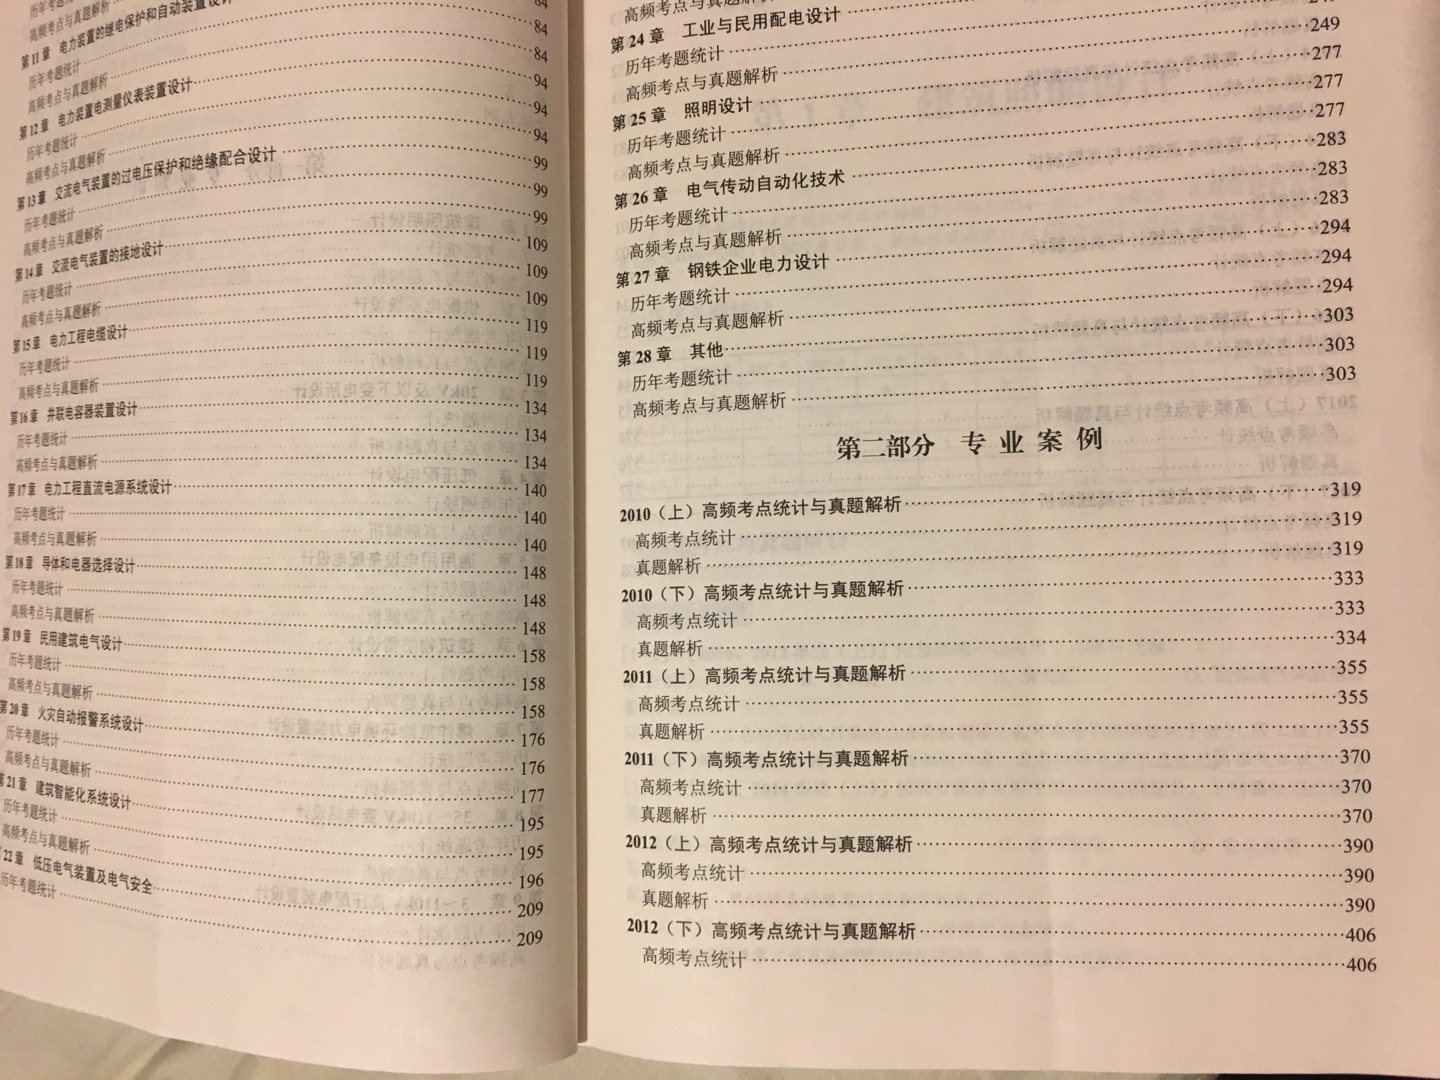 历年考题统计
高频考点与真题解析
第11章 电力装置的继电保护和自动装置设计
历年考题统计 84
高频考点与真题解析 84
第12章 电力装置电测量仪表装置设计 94
历年考题统计 94
高频考点与真题解析 94
第13章 交流电气装置的过电压保护和绝缘配合设计 99
历年考题统计 99
高频考点与真题解析 99
第14章 交流电气装置的接地设计 109
历年考题统计 109
高频考点与真题解析 109
第15章 电力工程电缆设计 119
历年考题统计 119
高频考点与真题解析 119
第16章 并联电容器装置设计 134
历年考题统计 134
高频考点与真题解析 134
第17章 电力工程直流电源系统设计 140
历年考题统计 140
高频考点与真题解析 140
第18章 导体和电器选择设计 148
历年考题统计 148
高频考点与真题解析 148
第19章 民用建筑电气设计 158
历年考题统计 158
高频考点与真题解析 158
第20章 火灾自动报警系统设计 176
历年考题统计 176
高频考点与真题解析 177
第21章 建筑智能化系统设计 195
历年考题统计 195
高频考点与真题解析 196
22章 低压电气装置及电气安全 209
历年考题统计 209
高频考点与真题解析
第24章 工业与民用配电设计
历年考题统计 249
高频考点与真题解析 249
第25章 照明设计 277
历年考题统计 277
高频考点与真题解析 277
第26章 电气传动自动化技术 283
历年考题统计 283
高频考点与真题解析 283
第27章 钢铁企业电力设计 294
历年考题统计 294
高频考点与真题解析 294
第28章 其他 303
历年考题统计 303
高频考点与真题解析 303
第二部分 专业案例
2010（上）高频考点统计与真题解析 319
高频考点统计 319
真题解析 319
2010（下）高频考点统计与真题解析 333
高频考点统计 333
真题解析 334
2011（上）高频考点统计与真题解析 355
高频考点统计 355
真题解析 355
2011（下）高频考点统计与真题解析 370
高频考点统计 370
真题解析 370
2012（上）高频考点统计与真题解析 390
高频考点统计 390
真题解析 390
2012（下）高频考点统计与真题解析 406
高频考点统计 406